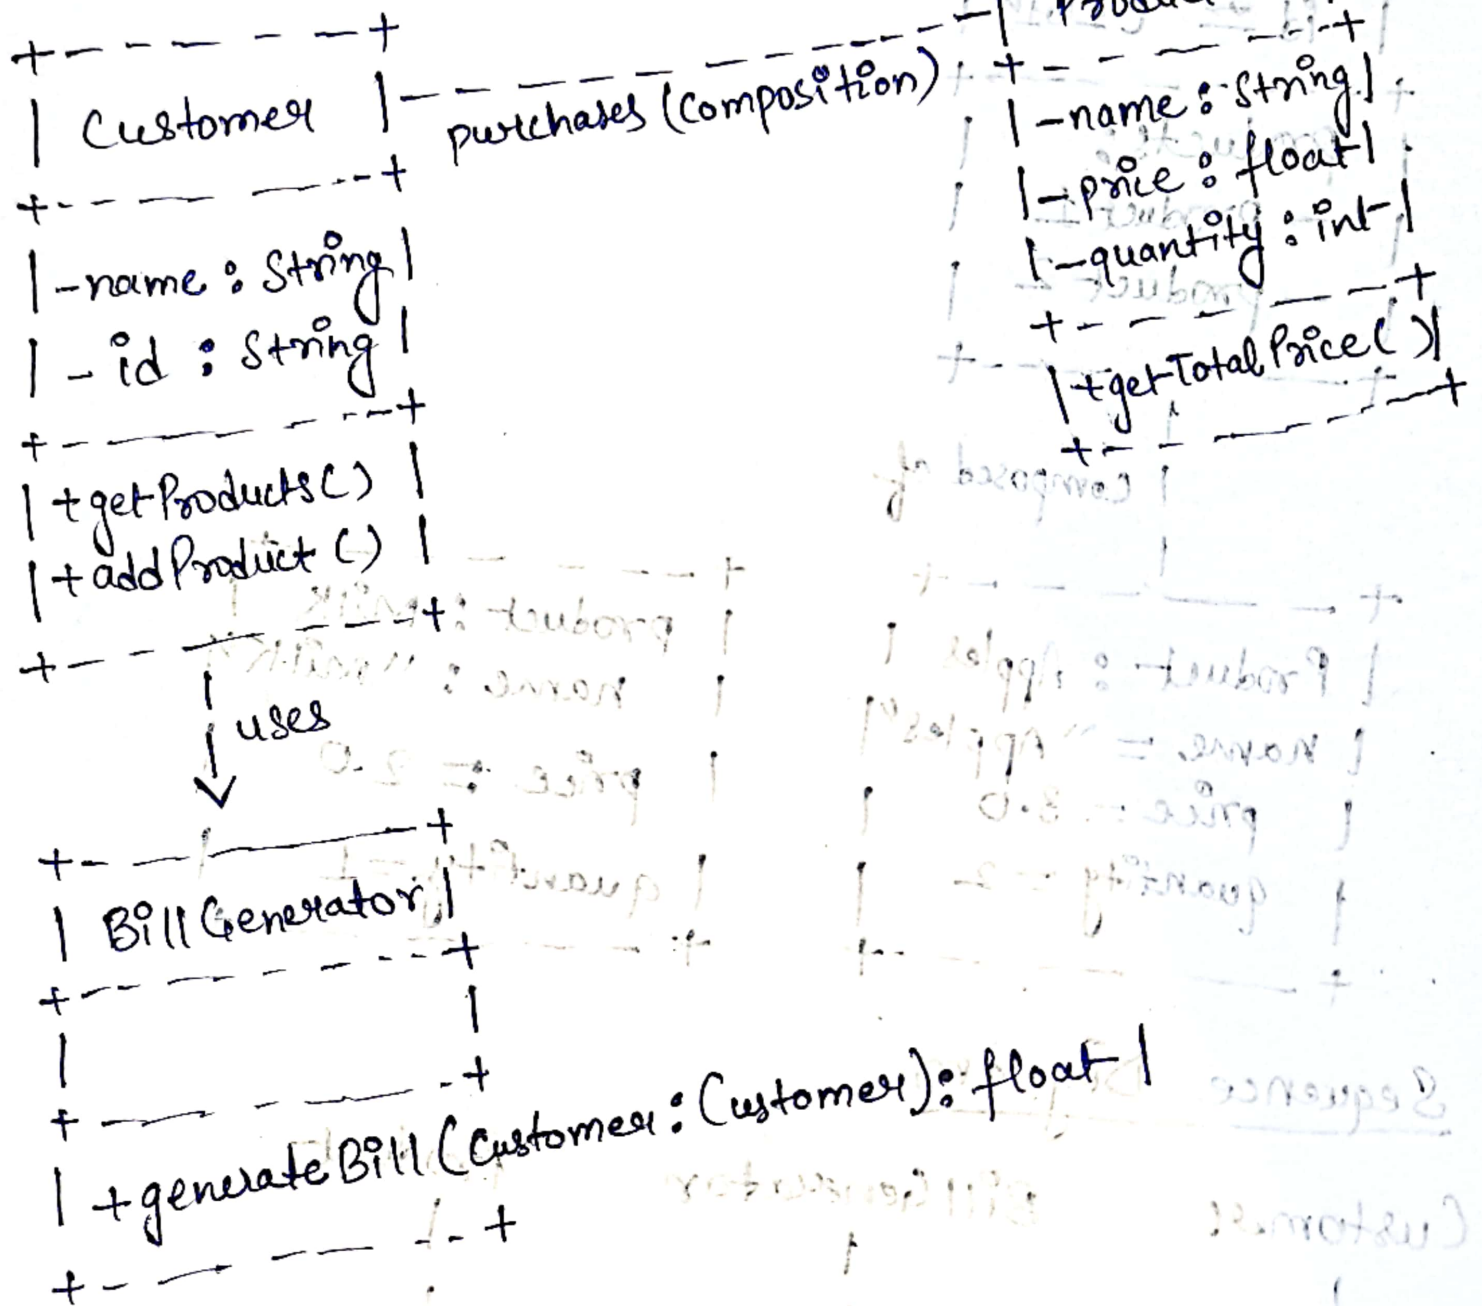 +-----+
| Customer |------ purchases (Composition) ------|
+-----+
| -name : String |
| - id : String |
+-----+
| +getProducts() |
| +addProduct () |
+-----+
|
| uses
↓
+-----+
| BillGenerator |
+-----+
| |
+-----+
| +generateBill (Customer : Customer) : float |
+-----+
+-----+
| -name : String |
| -price : float |
| -quantity : int |
+-----+
| +getTotalPrice( ) |
+-----+